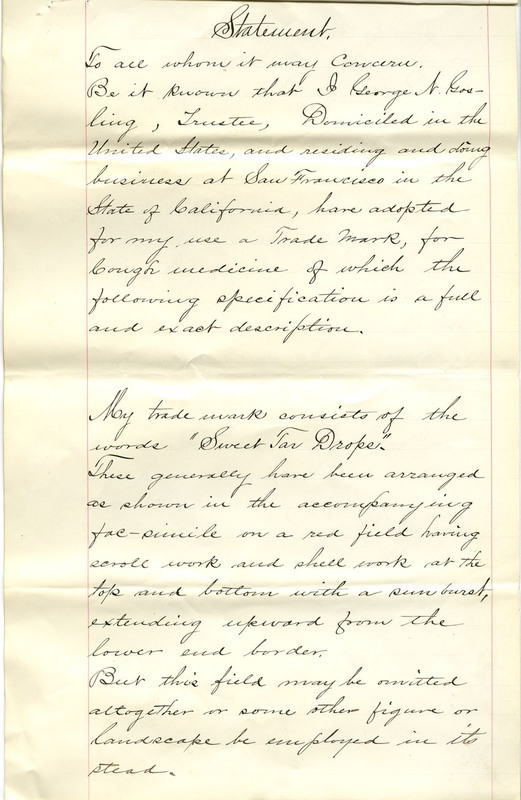 Statement.
To all whom it may Concern.
Be it known that I George N. Gos-
ling, Trustee, Domiciled in the
United States, and residing and doing
business at San Francisco in the
State of California, have adopted
for my use a Trade Mark, for
Cough medicine of which the
following specification is a full
and exact description.
My trade mark consists of the
words "Sweet Tar Drops."
These generally have been arranged
as shown in the accompanying
fac-simile on a red field having
scroll work and shell work at the
top and bottom with a sun burst,
extending upward from the
lower end border.
But this field may be omitted
altogether or some other figure or
landscape be employed in its
stead.